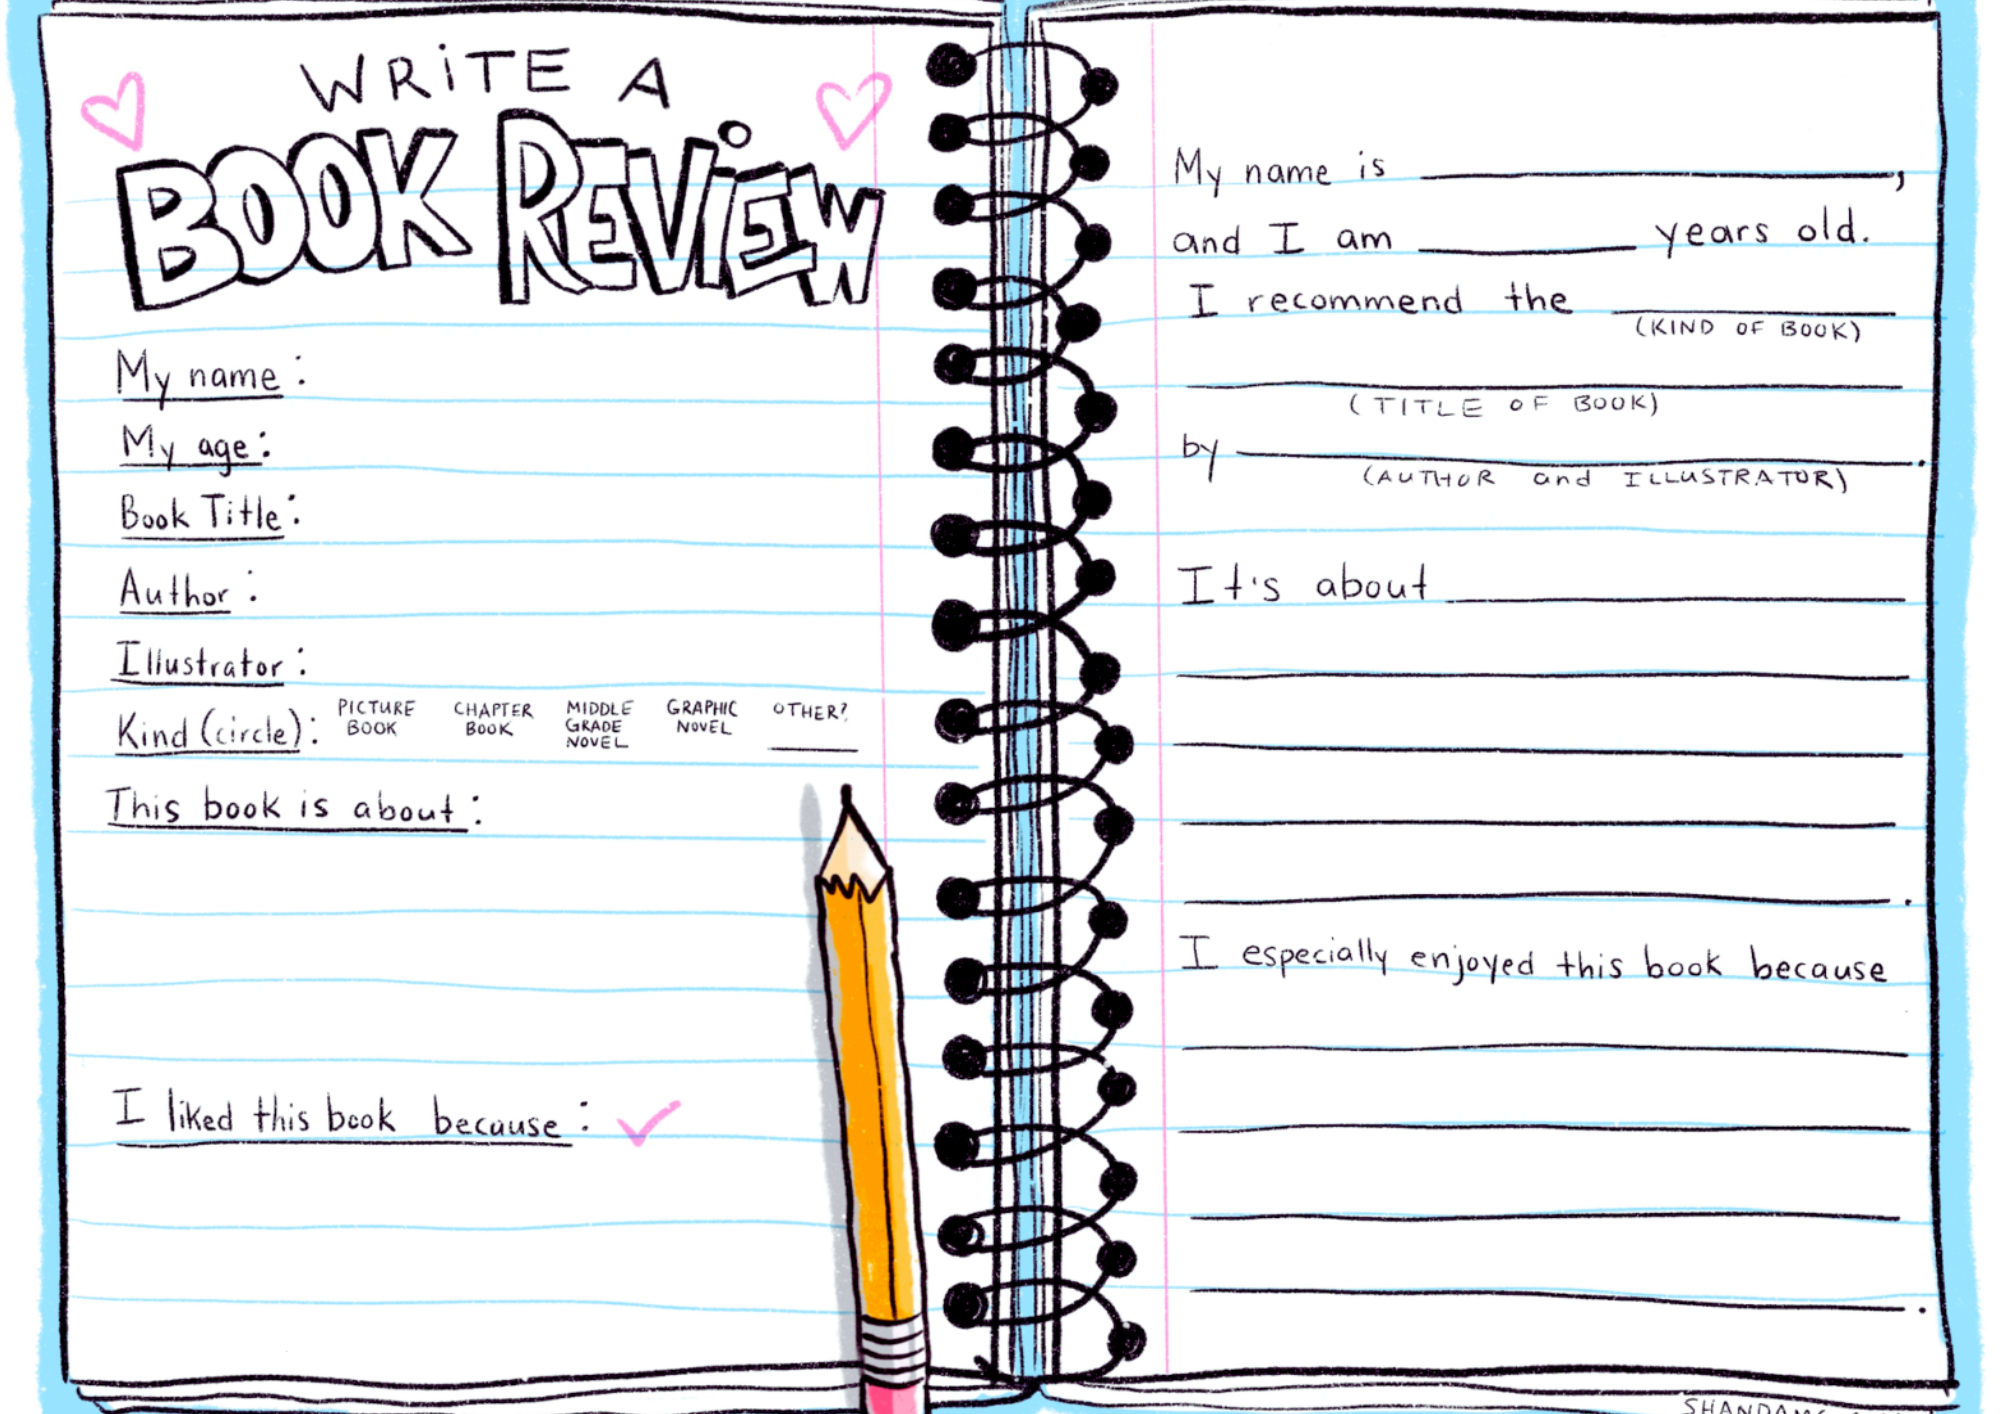 WRiTE A
BOOK REViEW
My name:
My age:
Book Title:
Author:
Illustrator:
Kind (circle): PICTURE BOOK CHAPTER BOOK MIDDLE GRADE NOVEL GRAPHIC NOVEL OTHER?
This book is about:
I liked this book because:
My name is ,
and I am years old.
I recommend the
(KIND OF BOOK)
(TITLE OF BOOK)
by .
(AUTHOR and ILLUSTRATOR)
It's about
.
I especially enjoyed this book because
.